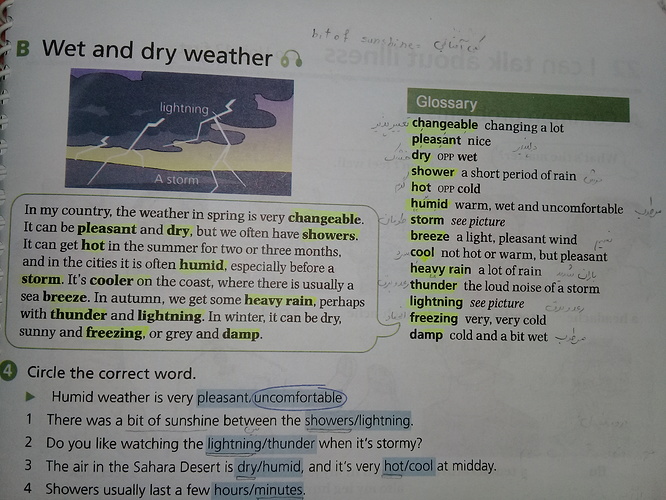 bit of sunshine = کمی آفتابی
B Wet and dry weather
lightning
A storm
In my country, the weather in spring is very changeable.
It can be pleasant and dry, but we often have showers.
It can get hot in the summer for two or three months,
and in the cities it is often humid, especially before a
storm. It's cooler on the coast, where there is usually a
sea breeze. In autumn, we get some heavy rain, perhaps
with thunder and lightning. In winter, it can be dry,
sunny and freezing, or grey and damp.
Glossary
changeable changing a lot تغییر پذیر
pleasant nice دلپذیر
dry OPP wet خشک
shower a short period of rain
hot OPP cold گرم
humid warm, wet and uncomfortable مرطوب
storm see picture طوفان
breeze a light, pleasant wind نسیم
cool not hot or warm, but pleasant
heavy rain a lot of rain باران شدید
thunder the loud noise of a storm
lightning see picture رعد و برق
freezing very, very cold
damp cold and a bit wet مرطوب
4 Circle the correct word.
Humid weather is very pleasant/uncomfortable
1 There was a bit of sunshine between the showers/lightning.
2 Do you like watching the lightning/thunder when it's stormy?
3 The air in the Sahara Desert is dry/humid, and it's very hot/cool at midday.
4 Showers usually last a few hours/minutes.